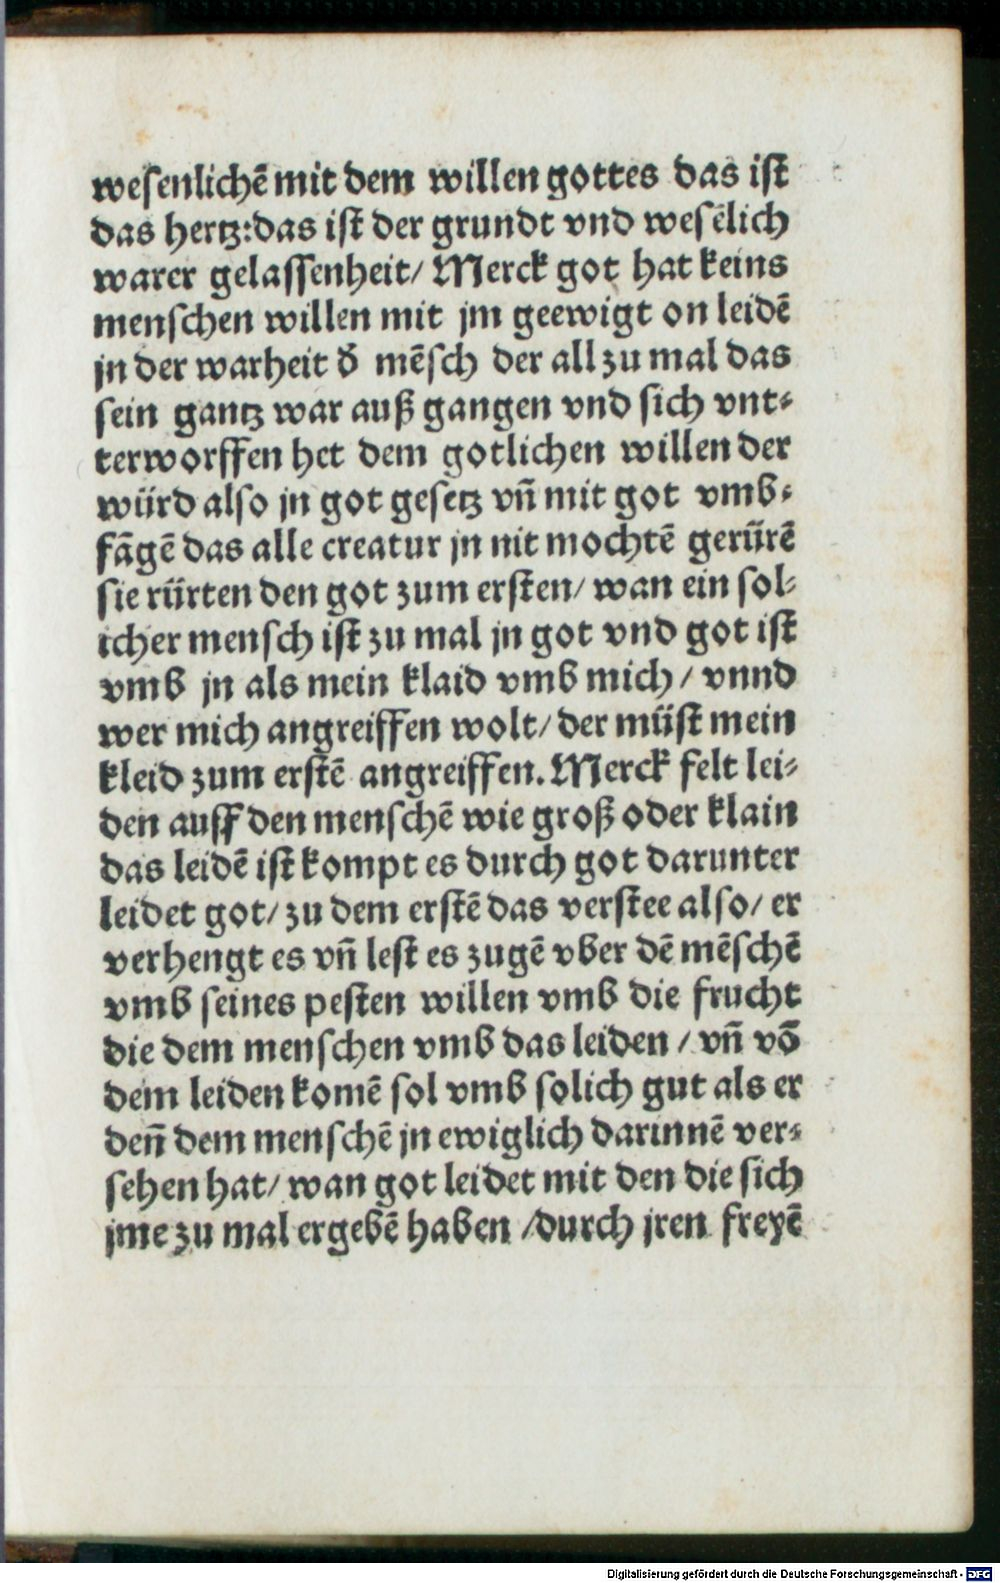 wesenlichē mit dem willen gottes das ist
das hertz:das ist der grundt vnd wesēlich
warer gelassenheit/ Merck got hat keins
menschen willen mit jm geewigt on leidē
jn der warheit d̄ mēsch der all zu mal das
sein gantz war auß gangen vnd sich vnt-
terworffen het dem gotlichen willen der
würd also jn got gesetz vn̄ mit got vmb-
fāgē das alle creatur jn nit mochtē gerürē
sie rürten den got zum ersten/ wan ein sol-
icher mensch ist zu mal jn got vnd got ist
vmb jn als mein klaid vmb mich / vnnd
wer mich angreiffen wolt/ der müst mein
kleid zum erstē angreiffen. Merck felt lei-
den auff den menschē wie groß oder klain
das leidē ist kompt es durch got darunter
leidet got/ zu dem erstē das verstee also/ er
verhengt es vn̄ lest es zugē vber dē mēschē
vmb seines pesten willen vmb die frucht
die dem menschen vmb das leiden / vn̄ vō
dem leiden komē sol vmb solich gut als er
den̄ dem menschē jn ewiglich darinnē ver-
sehen hat/ wan got leidet mit den die sich
jme zu mal ergebē haben /durch jren freyē
Digitalisierung gefördert durch die Deutsche Forschungsgemeinschaft - DFG